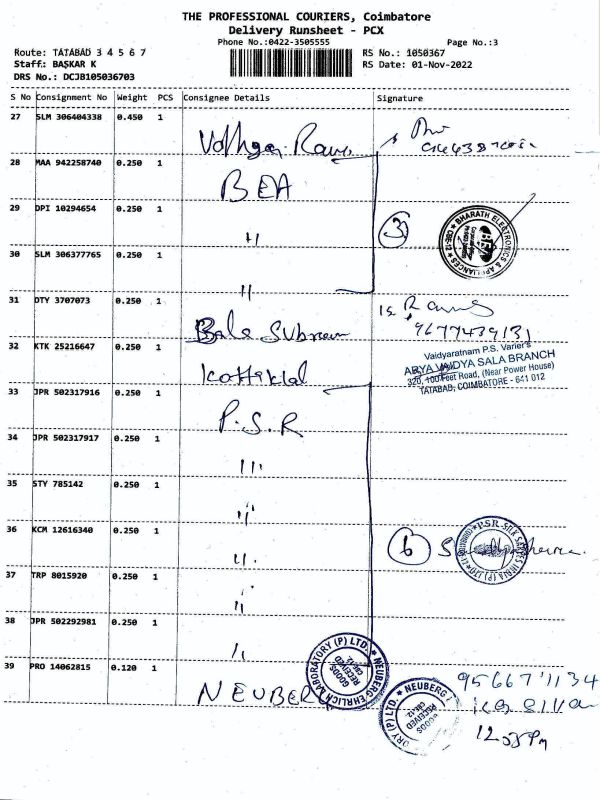 THE PROFESSIONAL COURIERS, Coimbatore
Delivery Runsheet - PCX
Phone No.:0422-3505555
Page No.:3
Route: TATABAD 3 4 5 6 7
Staff: BASKAR K
DRS No.: DCJB105036703
RS No.: 1050367
RS Date: 01-Nov-2022
S No Consignment No Weight PCS Consignee Details Signature
27 SLM 306404338 0.450 1
28 MAA 942258740 0.250 1 BEA
29 DPI 10294654 0.250 1 " 3
BHARATH ELECTRONICS & APPLIANCES
30 SLM 306377765 0.250 1 "
31 DTY 3707073 0.250 1 Bala
9677439131
32 KTK 25216647 0.250 1 Kottakkal
Vaidyaratnam P.S. Varier's
ARYA VAIDYA SALA BRANCH
320, 100 Feet Road, (Near Power House)
TATABAD, COIMBATORE - 641 012
33 JPR 502317916 0.250 1 P.S.R
34 JPR 502317917 0.250 1 "
35 STY 785142 0.250 1 "
36 KCM 12616340 0.250 1 " 6
P.S.R. SILK SAREES INDIA (P) LTD
37 TRP 8015920 0.250 1 "
38 JPR 502292981 0.250 1 "
39 PRO 14062815 0.120 1 NEUBERG
NEUBERG EHRLICH LABORATORY (P) LTD.
GOODS
RECEIVED
CBE-12
NEUBERG
ORY (P) LTD.
GOODS
RECEIVED
CBE-12